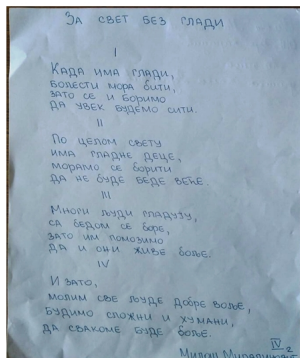 За свет без глади
I
Када има глади,
болести мора бити,
зато се и боримо
да увек будемо сити.
II
По целом свету
има гладне деце,
морамо се борити
да не буде беде веће.
III
Многи људи гладују,
са бедом се боре,
зато им помозимо
да и они живе боље.
IV
И зато,
молим све људе добре воље,
будимо сложни и хумани,
да свакоме буде боље.
IV2
Милош